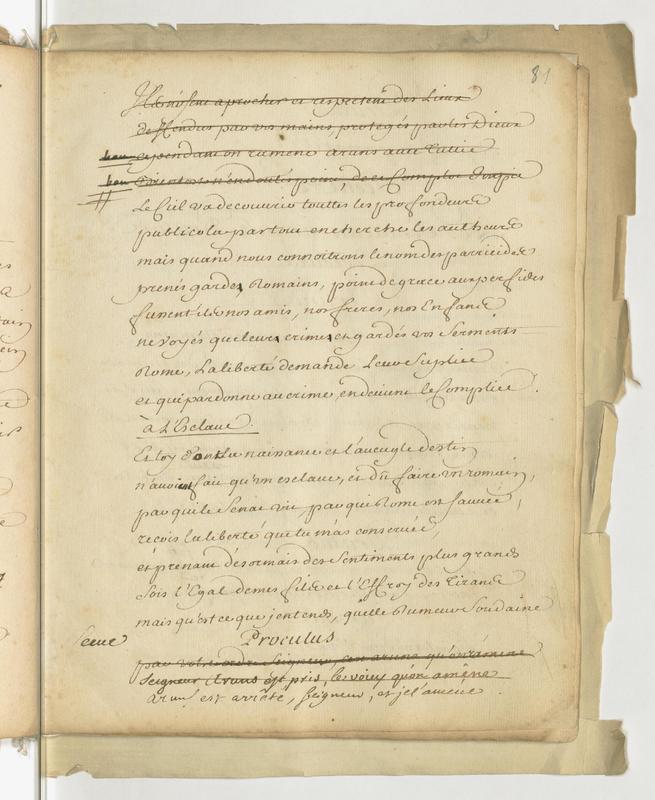 81
Ils n'osent aprocher et respectent des Lieux
deffendus par vos mains, protegés par les Dieux
bon cependant on ramene aruns avec Tullie
bon n'en doutés point, de ce Complot impie
Le Ciel va decouvrir touttes les profondeurs
publicola partout en cherche les autheurs
mais quand nous connoitrons le nom des parricides
prenés garde, Romains, point de grace aux perfides
fussent ils nos amis, nos freres, nos Enfans
ne voyés que leurs crimes et gardés vos Serments
Rome, La liberté demande Leur Suplice
et qui pardonne au crime, en devient le Complice.
à L'Esclave.
Et toy dont la naissance et l'aveugle destin
n'avoient fait qu'un esclave, et dû faire un romain,
par qui le Senat vit, par qui Rome est sauvée,
recois la liberté que tu m'as conservée,
et prenant désormais des Sentiments plus grands
sois l'Egal de mes fils et l'Effroy des Tirans
mais qu'est ce que j'entends, quelle Rumeur Soudaine
Scene Proculus
par votre ordre Seigneur, c'est aruns qu'on ramene
Seigneur Aruns est pris, le voicy qu'on amêne
aruns est arrêté, Seigneur, et je l'amene.